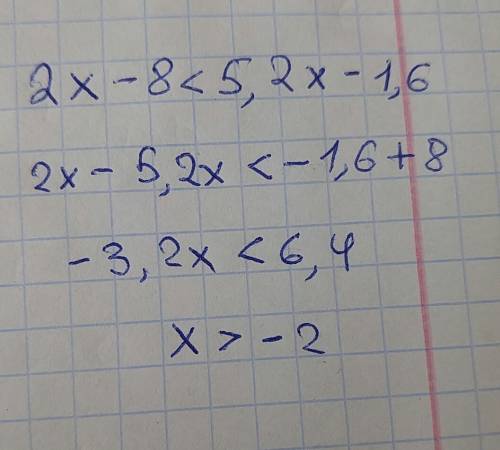 2x - 8 < 5,2x - 1,6
2x - 5,2x < - 1,6 + 8
- 3,2x < 6,4
x > - 2